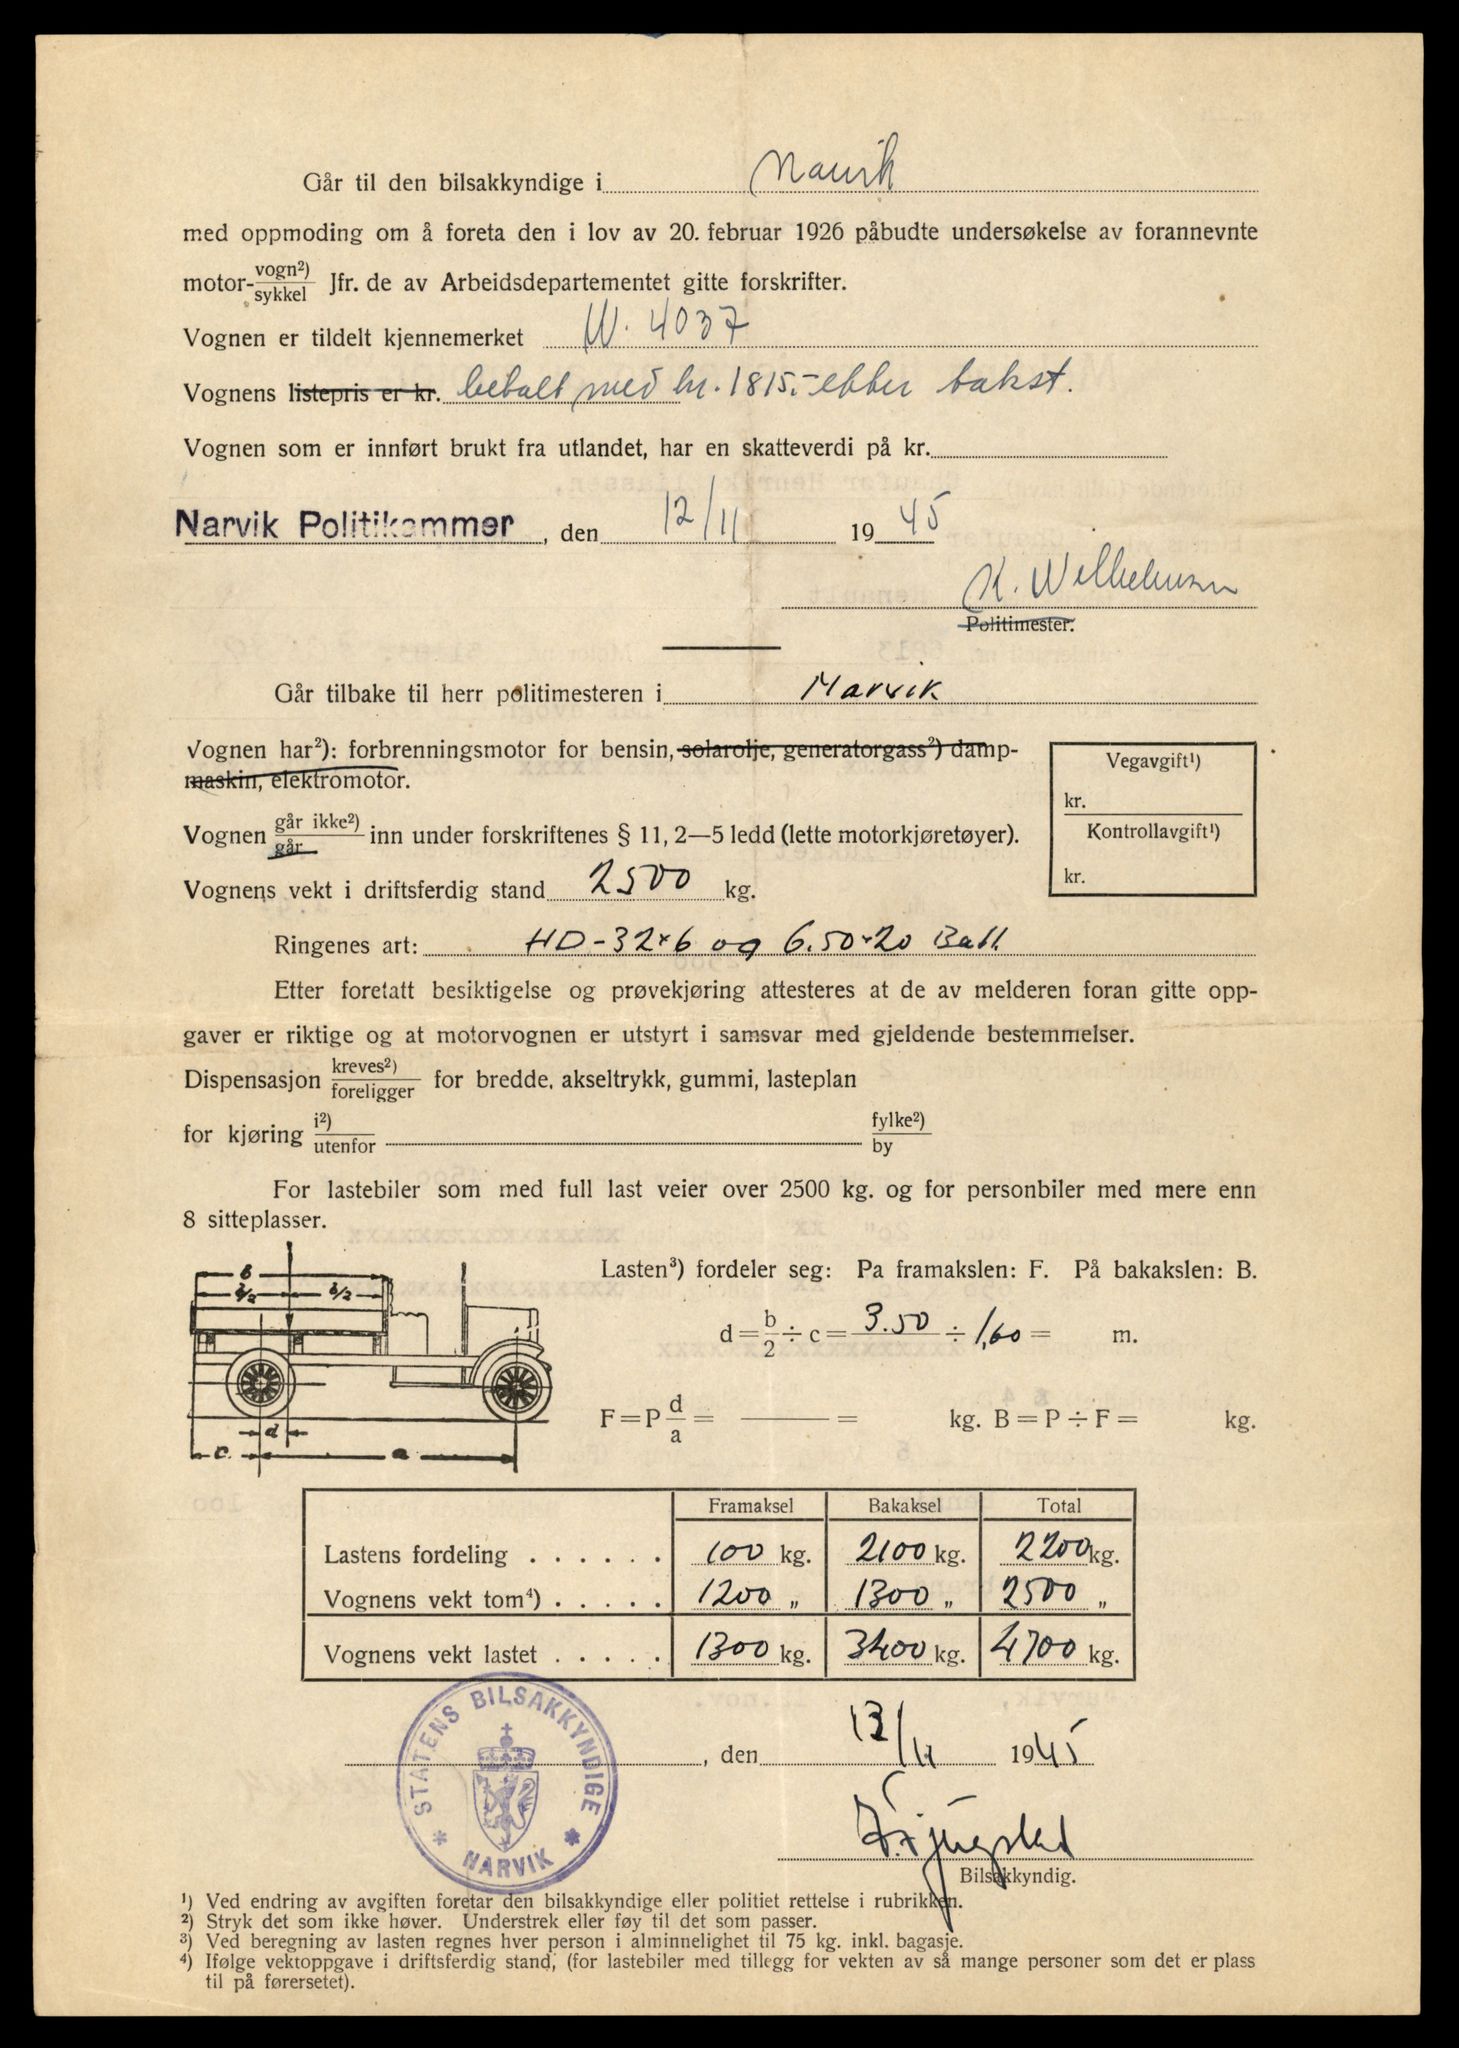 Går til den bilsakkyndige i Narvik
med oppmoding om å foreta den i lov av 20. februar 1926 påbudte undersøkelse av forannevnte
motor- vogn²) / sykkel Jfr. de av Arbeidsdepartementet gitte forskrifter.
Vognen er tildelt kjennemerket W. 4037
Vognens listepris er kr. betalt med kr. 1815.- etter takst.
Vognen som er innført brukt fra utlandet, har en skatteverdi på kr.
Narvik Politikammer, den 12/11 1945
K. Wilhelmsen
Politimester.
Går tilbake til herr politimesteren i Narvik
Vognen har²): forbrenningsmotor for bensin, solarolje, generatorgass²) damp-
maskin, elektromotor.
Vegavgift¹)
kr.
Kontrollavgift¹)
kr.
Vognen går ikke²) / går inn under forskriftenes § 11, 2—5 ledd (lette motorkjøretøyer).
Vognens vekt i driftsferdig stand 2500 kg.
Ringenes art: HD-32x6 og 6.50x20 Ball.
Etter foretatt besiktigelse og prøvekjøring attesteres at de av melderen foran gitte opp-
gaver er riktige og at motorvognen er utstyrt i samsvar med gjeldende bestemmelser.
Dispensasjon kreves²) / foreligger for bredde, akseltrykk, gummi, lasteplan
for kjøring i²) / utenfor fylke²) / by
For lastebiler som med full last veier over 2500 kg. og for personbiler med mere enn
8 sitteplasser.
B
b/2 b/2
d
c a
Lasten³) fordeler seg: Pa framakslen: F. På bakakslen: B.
d = b/2 ÷ c = 3.50 ÷ 1,60 = m.
F = P d/a = — = kg. B = P ÷ F = kg.
Framaksel Bakaksel Total
Lastens fordeling . . . . . . 100 kg. 2100 kg. 2200 kg.
Vognens vekt tom⁴) . . . . . 1200 „ 1300 „ 2500 „
Vognens vekt lastet . . . . . 1300 kg. 3400 kg. 4700 kg.
STATENS BILSAKKYNDIGE
* NARVIK *
, den 13/11 1945
Bilsakkyndig.
¹) Ved endring av avgiften foretar den bilsakkyndige eller politiet rettelse i rubrikken.
²) Stryk det som ikke høver. Understrek eller føy til det som passer.
³) Ved beregning av lasten regnes hver person i alminnelighet til 75 kg. inkl. bagasje.
⁴) Ifølge vektoppgave i driftsferdig stand, (for lastebiler med tillegg for vekten av så mange personer som det er plass
til på førersetet).